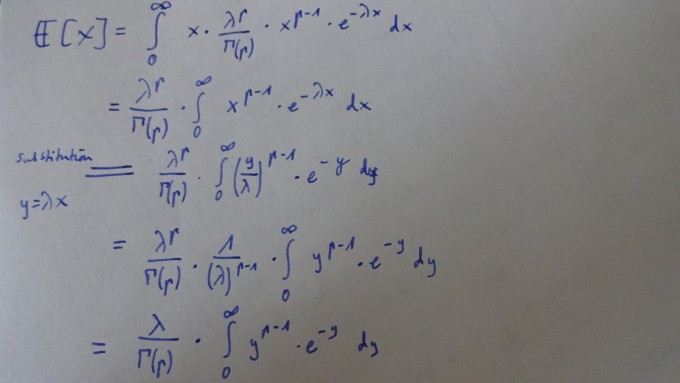 E[X] = ∫₀^∞ x · λ^r/Γ(r) · x^(r-1) · e^(-λx) dx
= λ^r/Γ(r) · ∫₀^∞ x^(r-1) · e^(-λx) dx
substitution
y=λx = λ^r/Γ(r) · ∫₀^∞ (y/λ)^(r-1) · e^(-y) dy
= λ^r/Γ(r) · 1/(λ)^(r-1) · ∫₀^∞ y^(r-1) · e^(-y) dy
= λ/Γ(r) · ∫₀^∞ y^(r-1) · e^(-y) dy